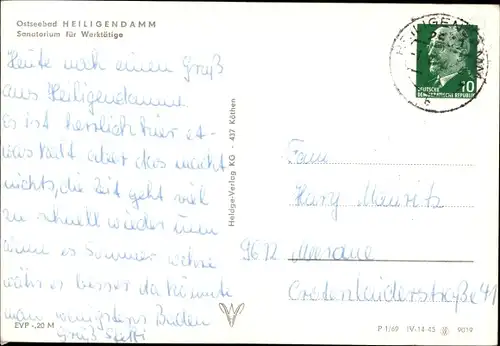 Ostseebad HEILIGENDAMM
Sanatorium für Werktätige
Heute noch einen Gruß
aus Heiligendamm.
Es ist herrlich hier et-
was kalt aber das macht
nichts, die Zeit geht viel
zu schnell wieder
es Sommer wäre
wär es besser da könnte
man wenigstens Baden
Gruß
EVP -,20 M
Heldge-Verlag KG - 437 Köthen
HEILIGENDAMM
10
DEUTSCHE
DEMOKRATISCHE REPUBLIK
Fam
Harry Mauritz
9612 Meerane
41
P 1/69 IV-14-45 9019